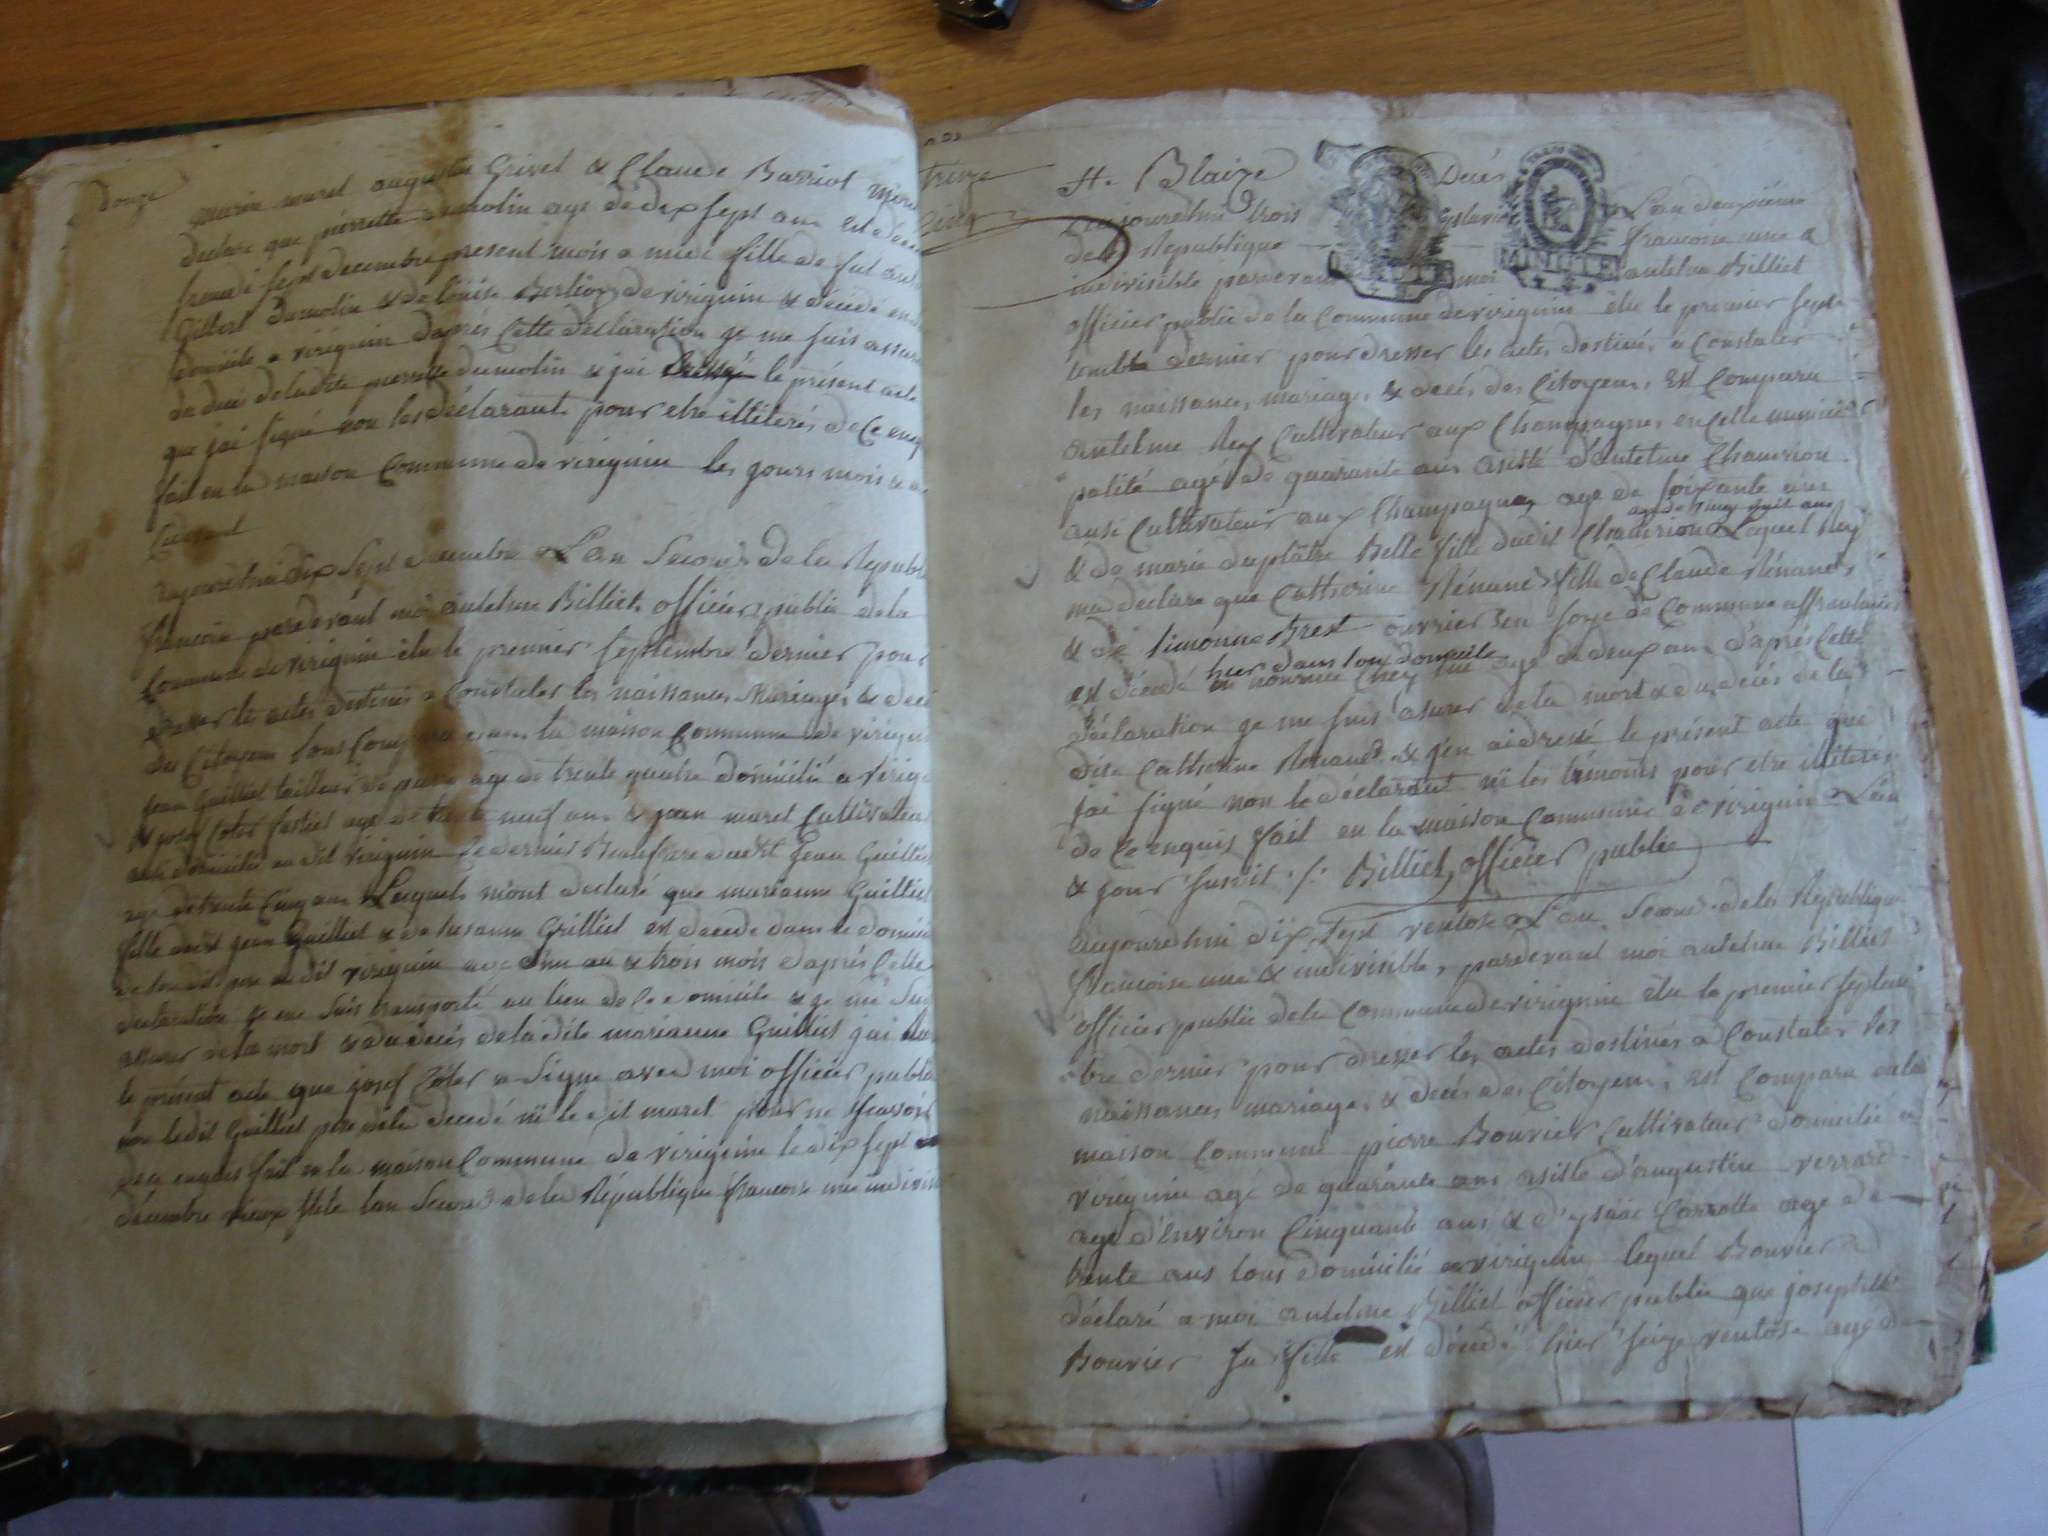 douze
marin muret augustin Grivel & Claude Barriol
declare que pierrette dumolin age de dix sept ans est
sept decembre present mois a midi fille de
Gilbert Dumolin & de louise Berlioz de virignin & décédé
domicile a virignin daprés Cette déclaration je me suis assuré
du deces de ladite pierrette dumolin & jai dressé le présent acte
que jai signé non les déclarants pour etre illiterés de Ce enquis
fait en la maison Commune de virignin les jours mois & an
Aujourdhui dix Sept decembre Lan Second de la Republi
francoise pardevant moi antelme Billiet officier public de la
Commune de virignin élu le premier Septembre dernier pour
dresser les actes destines a Constater les naissances Mariages & deces
des Citoyens sont Comparu dans la maison Commune de virignin
jean Guilliet tailleur de pierre age de trente quatre domicilié a virig
& josef Coter age de trente neuf ans & jean maret Cultivateur
domicilié au dit virignin ce dernier Beaufrere audit jean Guilliet
age de trente Cinq ans Lesquels m'ont declaré que marianne Guilliet
fille audit jean Guilliet & de susanne Grilliet est decede dans le domicile
de son dit pere au dit virignin age dun an & trois mois daprés Cette
declaration je me suis transporté au lieu de Ce domicile & je me suis
assurer de la mort & du décés de la dite marianne Guilliet jai
le présent acte que josef Coter a Signé avec moi officier public
non ledit Guilliet pere de la decedé ni le dit maret pour ne Scavoir
de ce enquis fait en la maison Commune de virignin le dix sept
décembre vieux stile lan Second de la République francoise une indivis
treize
H. Blaize Decés
aujourdhui trois Lan deuxiéme
de la Republique francoise une &
indivisible pardevant moi antelme Billiet
officier public de la Commune de virignin élu le premier Sept
tembre dernier pour dresser les actes destinés a Constater
les naissances, mariages & decés des Citoyens, est Comparu
antelme Rey Cultivateur aux Champagnes en Cette munici
palité agé de quarante ans asisté d'antelme Chamrion
aussi Cultivateur aux Champagnes age de soixante ans
& de marie duplâtre Belle fille dudit Chamrion Lequel Rey
ma declare que Catherine Rénand fille de Claude Rénand
& de Simonne Brest ouvrier en soye de Commune affranchie
hier dans son domicile
est décedé en nourrice Chez lui age de deux ans d'aprés Cette
Déclaration je me suis asurer de la mort & du decés de la
dite Catherine Renand & j'en ai dressé le présent acte que
jai signé non le déclarant ni les témoins pour etre illiterés
de Ce enquis fait en la maison Commune de virignin Lan
& jour susdit ./. Billiet, officier public
aujourdhui dix sept ventose Lan Second de la Republique
francoise une & indivisible, pardevant moi antelme Billiet
officier public de la Commune de virignin élu le premier septem
bre dernier pour dresser les actes destinés a Constater les
naissances mariages & decés des Citoyens, est Comparu en la
maison Commune pierre Bouvier Cultivateur domicilié a
virignin agé de quarante ans asisté d'augustin verrard
age d'environ Cinquante ans & d'ysaac Carrotte age de
trente ans tous domicilié a virignin lequel Bouvier a
déclaré a moi antelme Billiet officier public que josephte
Bouvier sa fille est décedé hier seize ventose age de